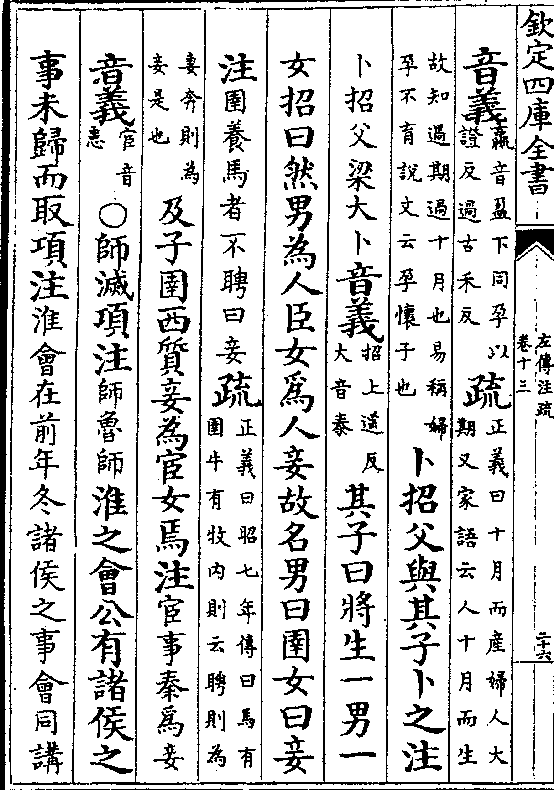 欽定四庫全書
左傳注疏
卷十三
二十六
音義嬴音盈下同孕以證反過古禾反疏正義曰十月而産婦人大期又家語云人十月而生
故知過期過十月也易稱婦孕不育說文云孕懷子也卜招父與其子卜之注
卜招父梁大卜音義招上遥反大音泰其子曰將生一男一
女招曰然男為人臣女為人妾故名男曰圉女曰妾
注圉養馬者不聘曰妾疏正義曰昭七年傳曰馬有圉牛有牧内則云聘則為
妻奔則為妾是也及子圉西質妾為宦女焉注宦事秦為妾
音義宦音患○師滅項注師魯師淮之會公有諸侯之
事未歸而取項注淮會在前年冬諸侯之事會同講